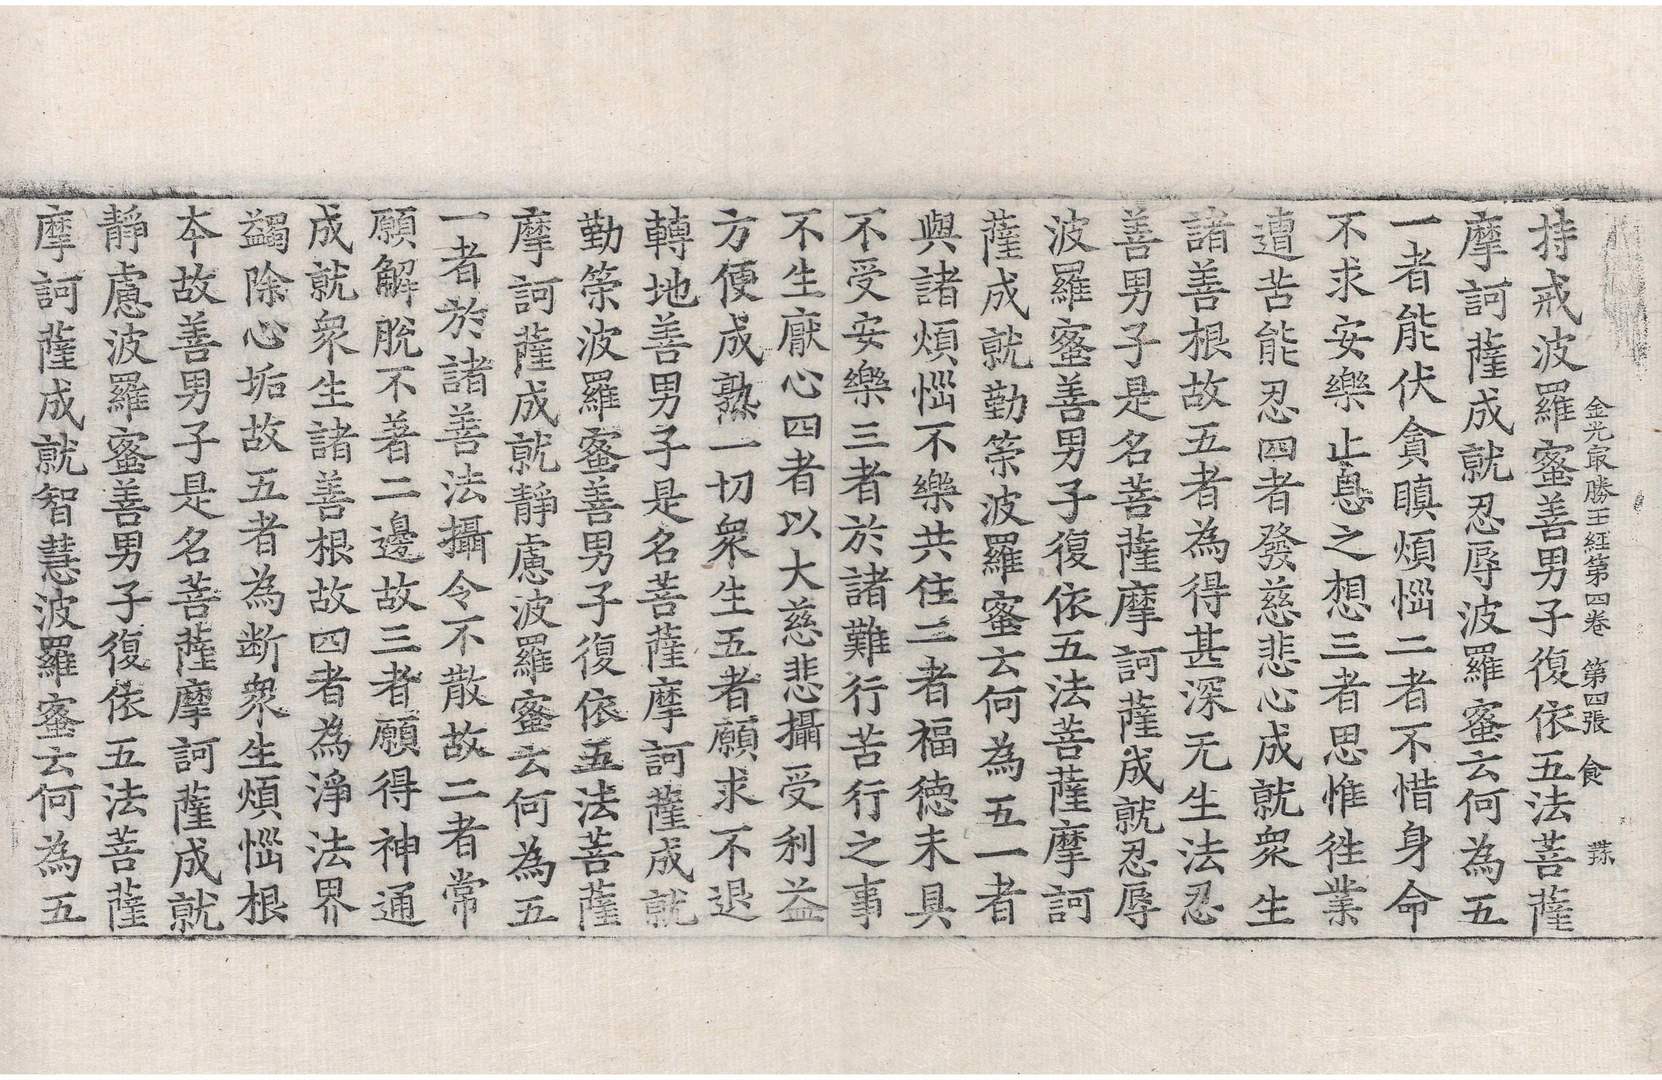 金光㝡勝王經第四卷 第四張 食
持戒波羅蜜善男子復依五法菩薩
摩訶薩成就忍辱波羅蜜云何為五
一者能伏貪瞋煩惱二者不惜身命
不求安樂止息之想三者思惟徃業
遭苦能忍四者發慈悲心成就衆生
諸善根故五者為得甚深无生法忍
善男子是名菩薩摩訶薩成就忍辱
波羅蜜善男子復依五法菩薩摩訶
薩成就勤策波羅蜜云何為五一者
與諸煩惱不樂共住二者福德未具
不受安樂三者於諸難行苦行之事
不生厭心四者以大慈悲攝受利益
方便成熟一切衆生五者願求不退
轉地善男子是名菩薩摩訶薩成就
勤策波羅蜜善男子復依五法菩薩
摩訶薩成就靜慮波羅蜜云何為五
一者於諸善法攝令不散故二者常
願解脫不著二邊故三者願得神通
成就衆生諸善根故四者為淨法界
蠲除心垢故五者為断衆生煩惱根
夲故善男子是名菩薩摩訶薩成就
靜慮波羅蜜善男子復依五法菩薩
摩訶薩成就智慧波羅蜜云何為五